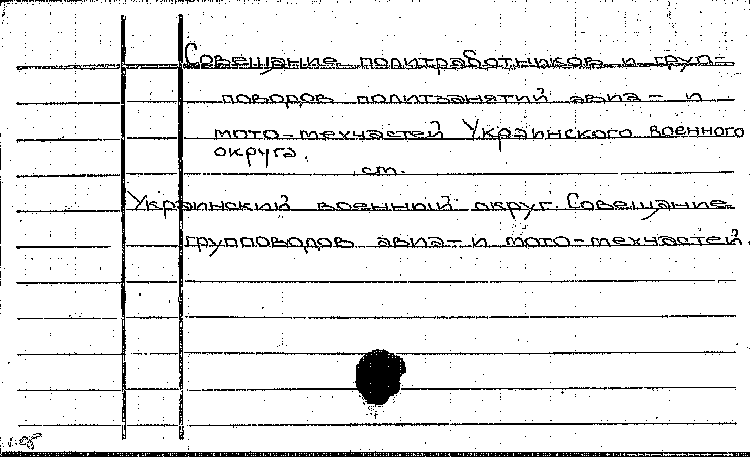 Совещание политработников и груп-
поводов политзанятий авиа- и
мото-мехчастей Украинского военного
округа.
ст.
Украинский военный округ. Совещание
групповодов авиа- и мото-мехчастей.